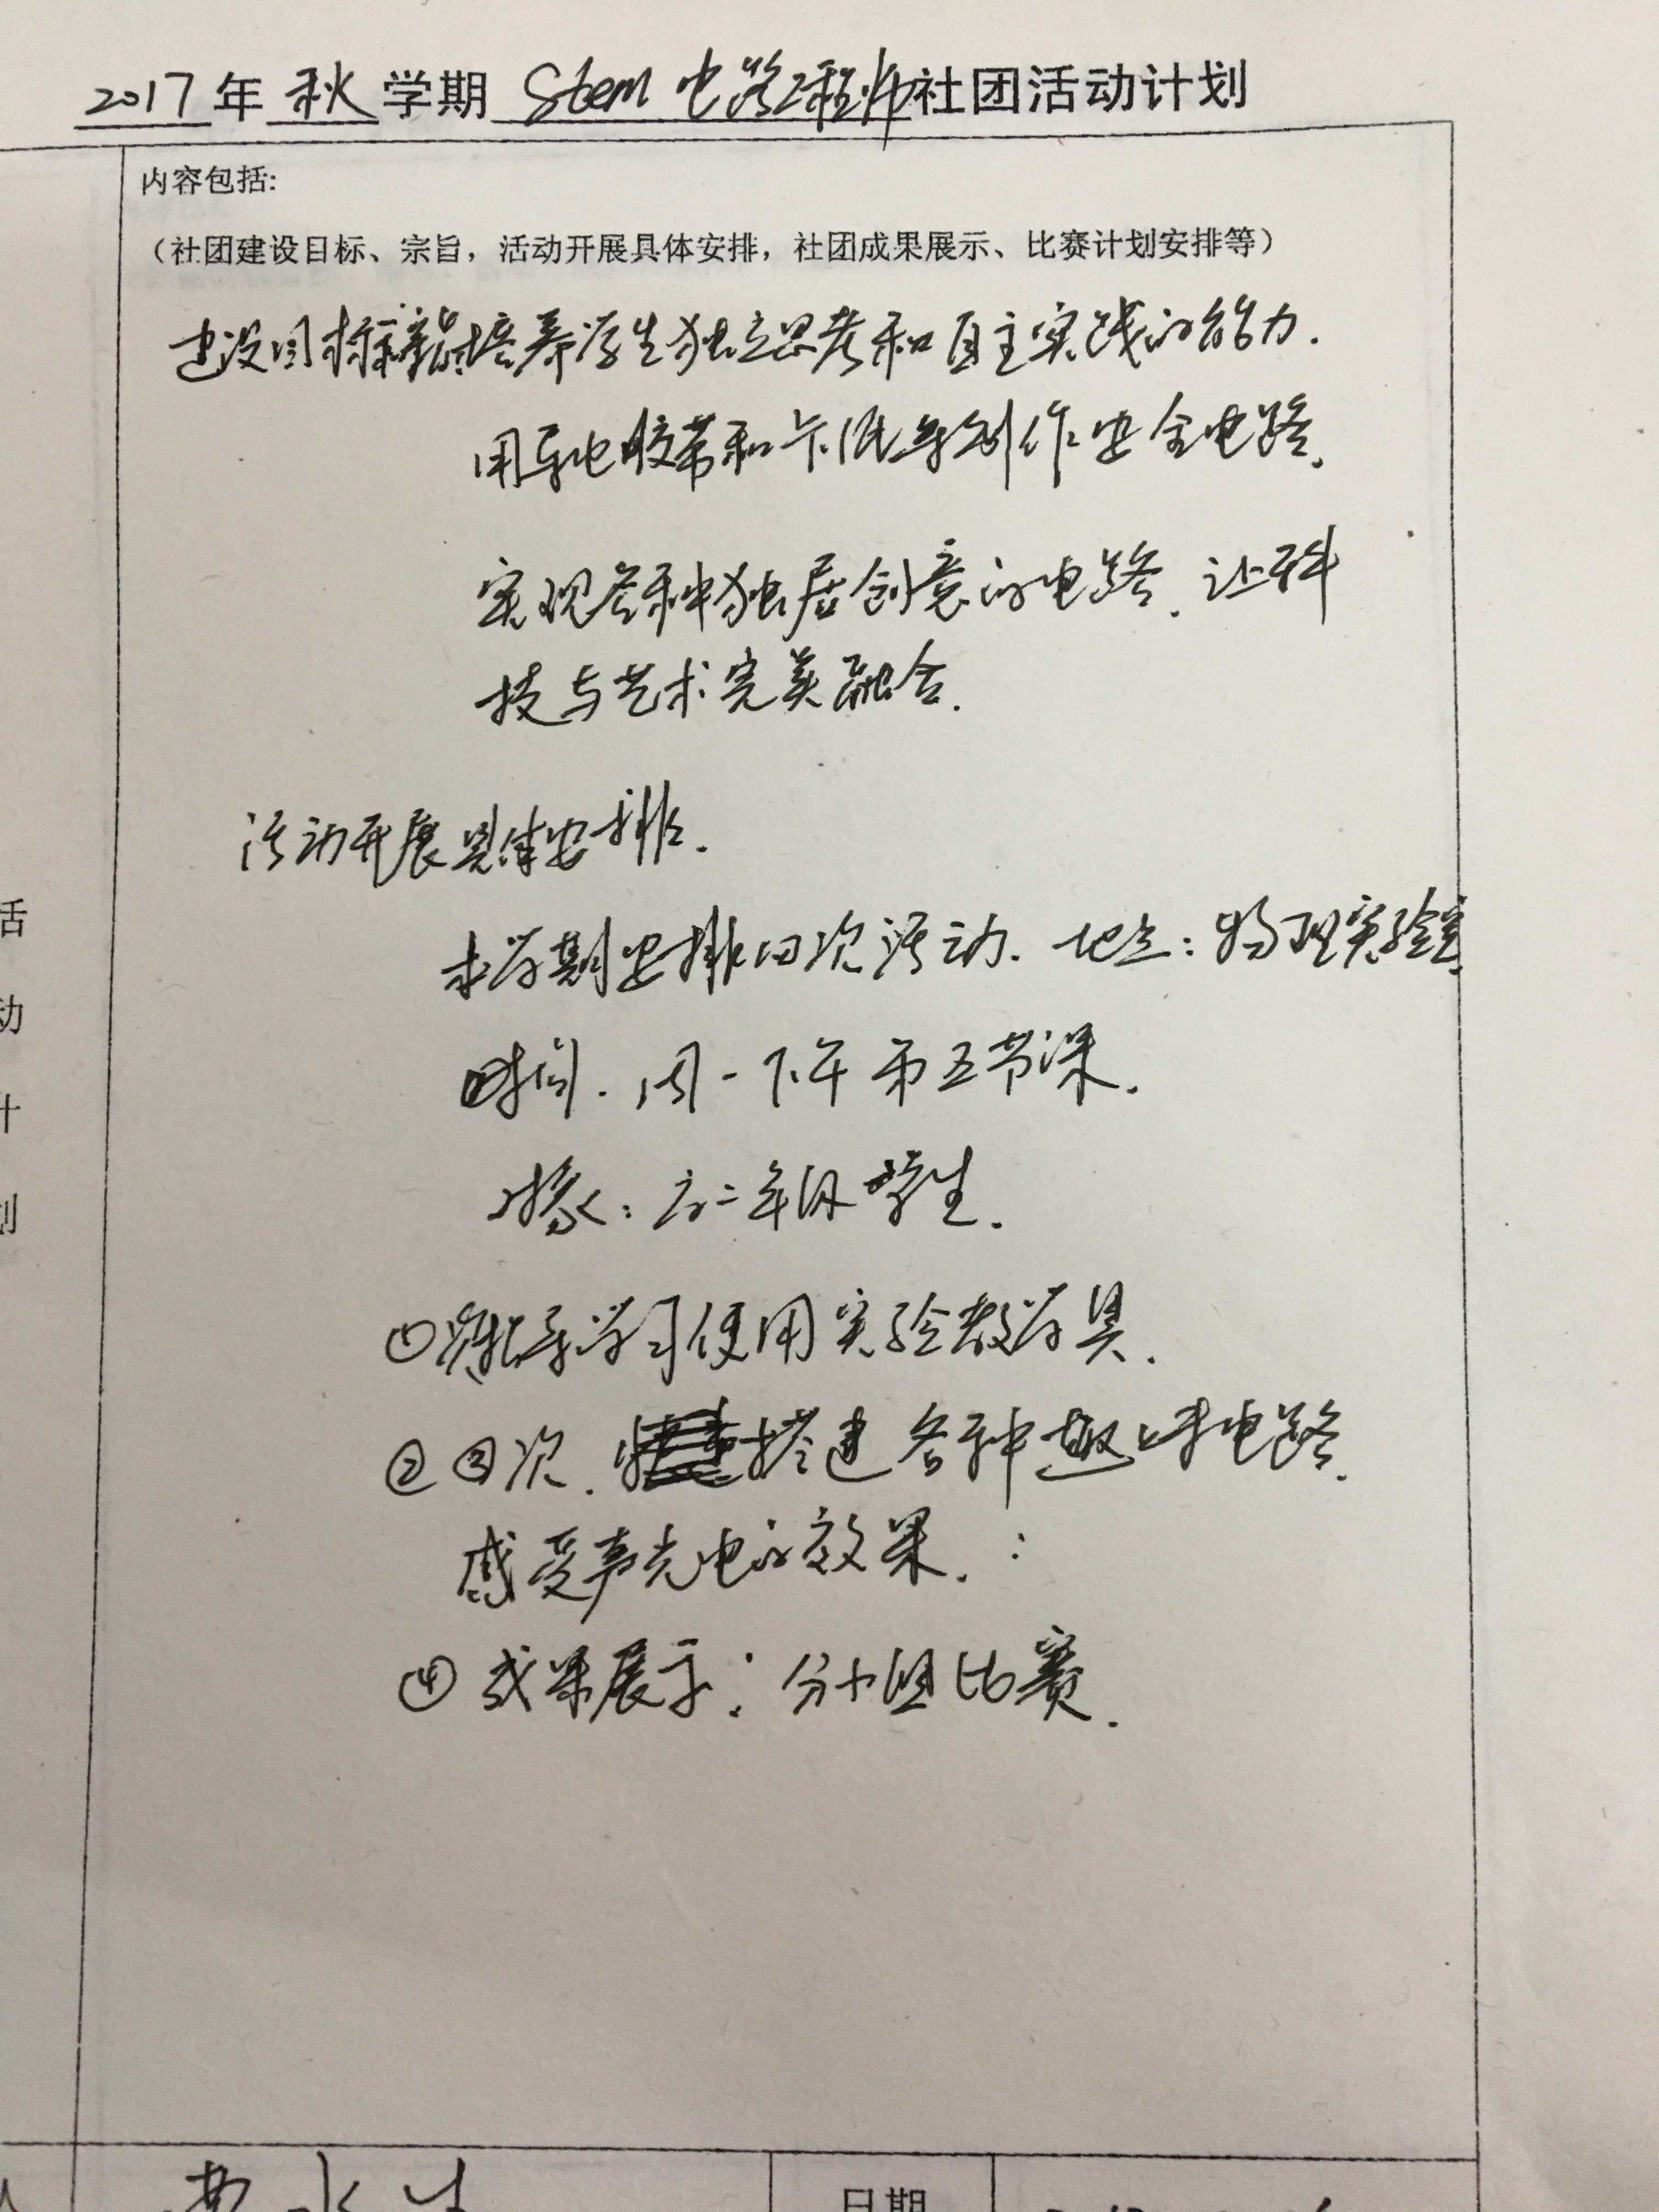 2017年秋学期Stem电路工程师社团活动计划
内容包括:
（社团建设目标、宗旨，活动开展具体安排，社团成果展示、比赛计划安排等）
建设目标 培养学生独立思考和自主实践的能力.
用导电胶带和卡纸等创作安全电路.
实现各种独居创意的电路.让科
技与艺术完美融合.
活动开展具体安排.
本学期安排四次活动.地点:物理实验室.
时间.周一下午第五节课.
对象:高二年级学生.
①指导学习使用实验教学具.
②③次.搭建各种趣味电路.
感受声光电的效果.:
④成果展示:分小组比赛.
活
动
计
划
人
日期